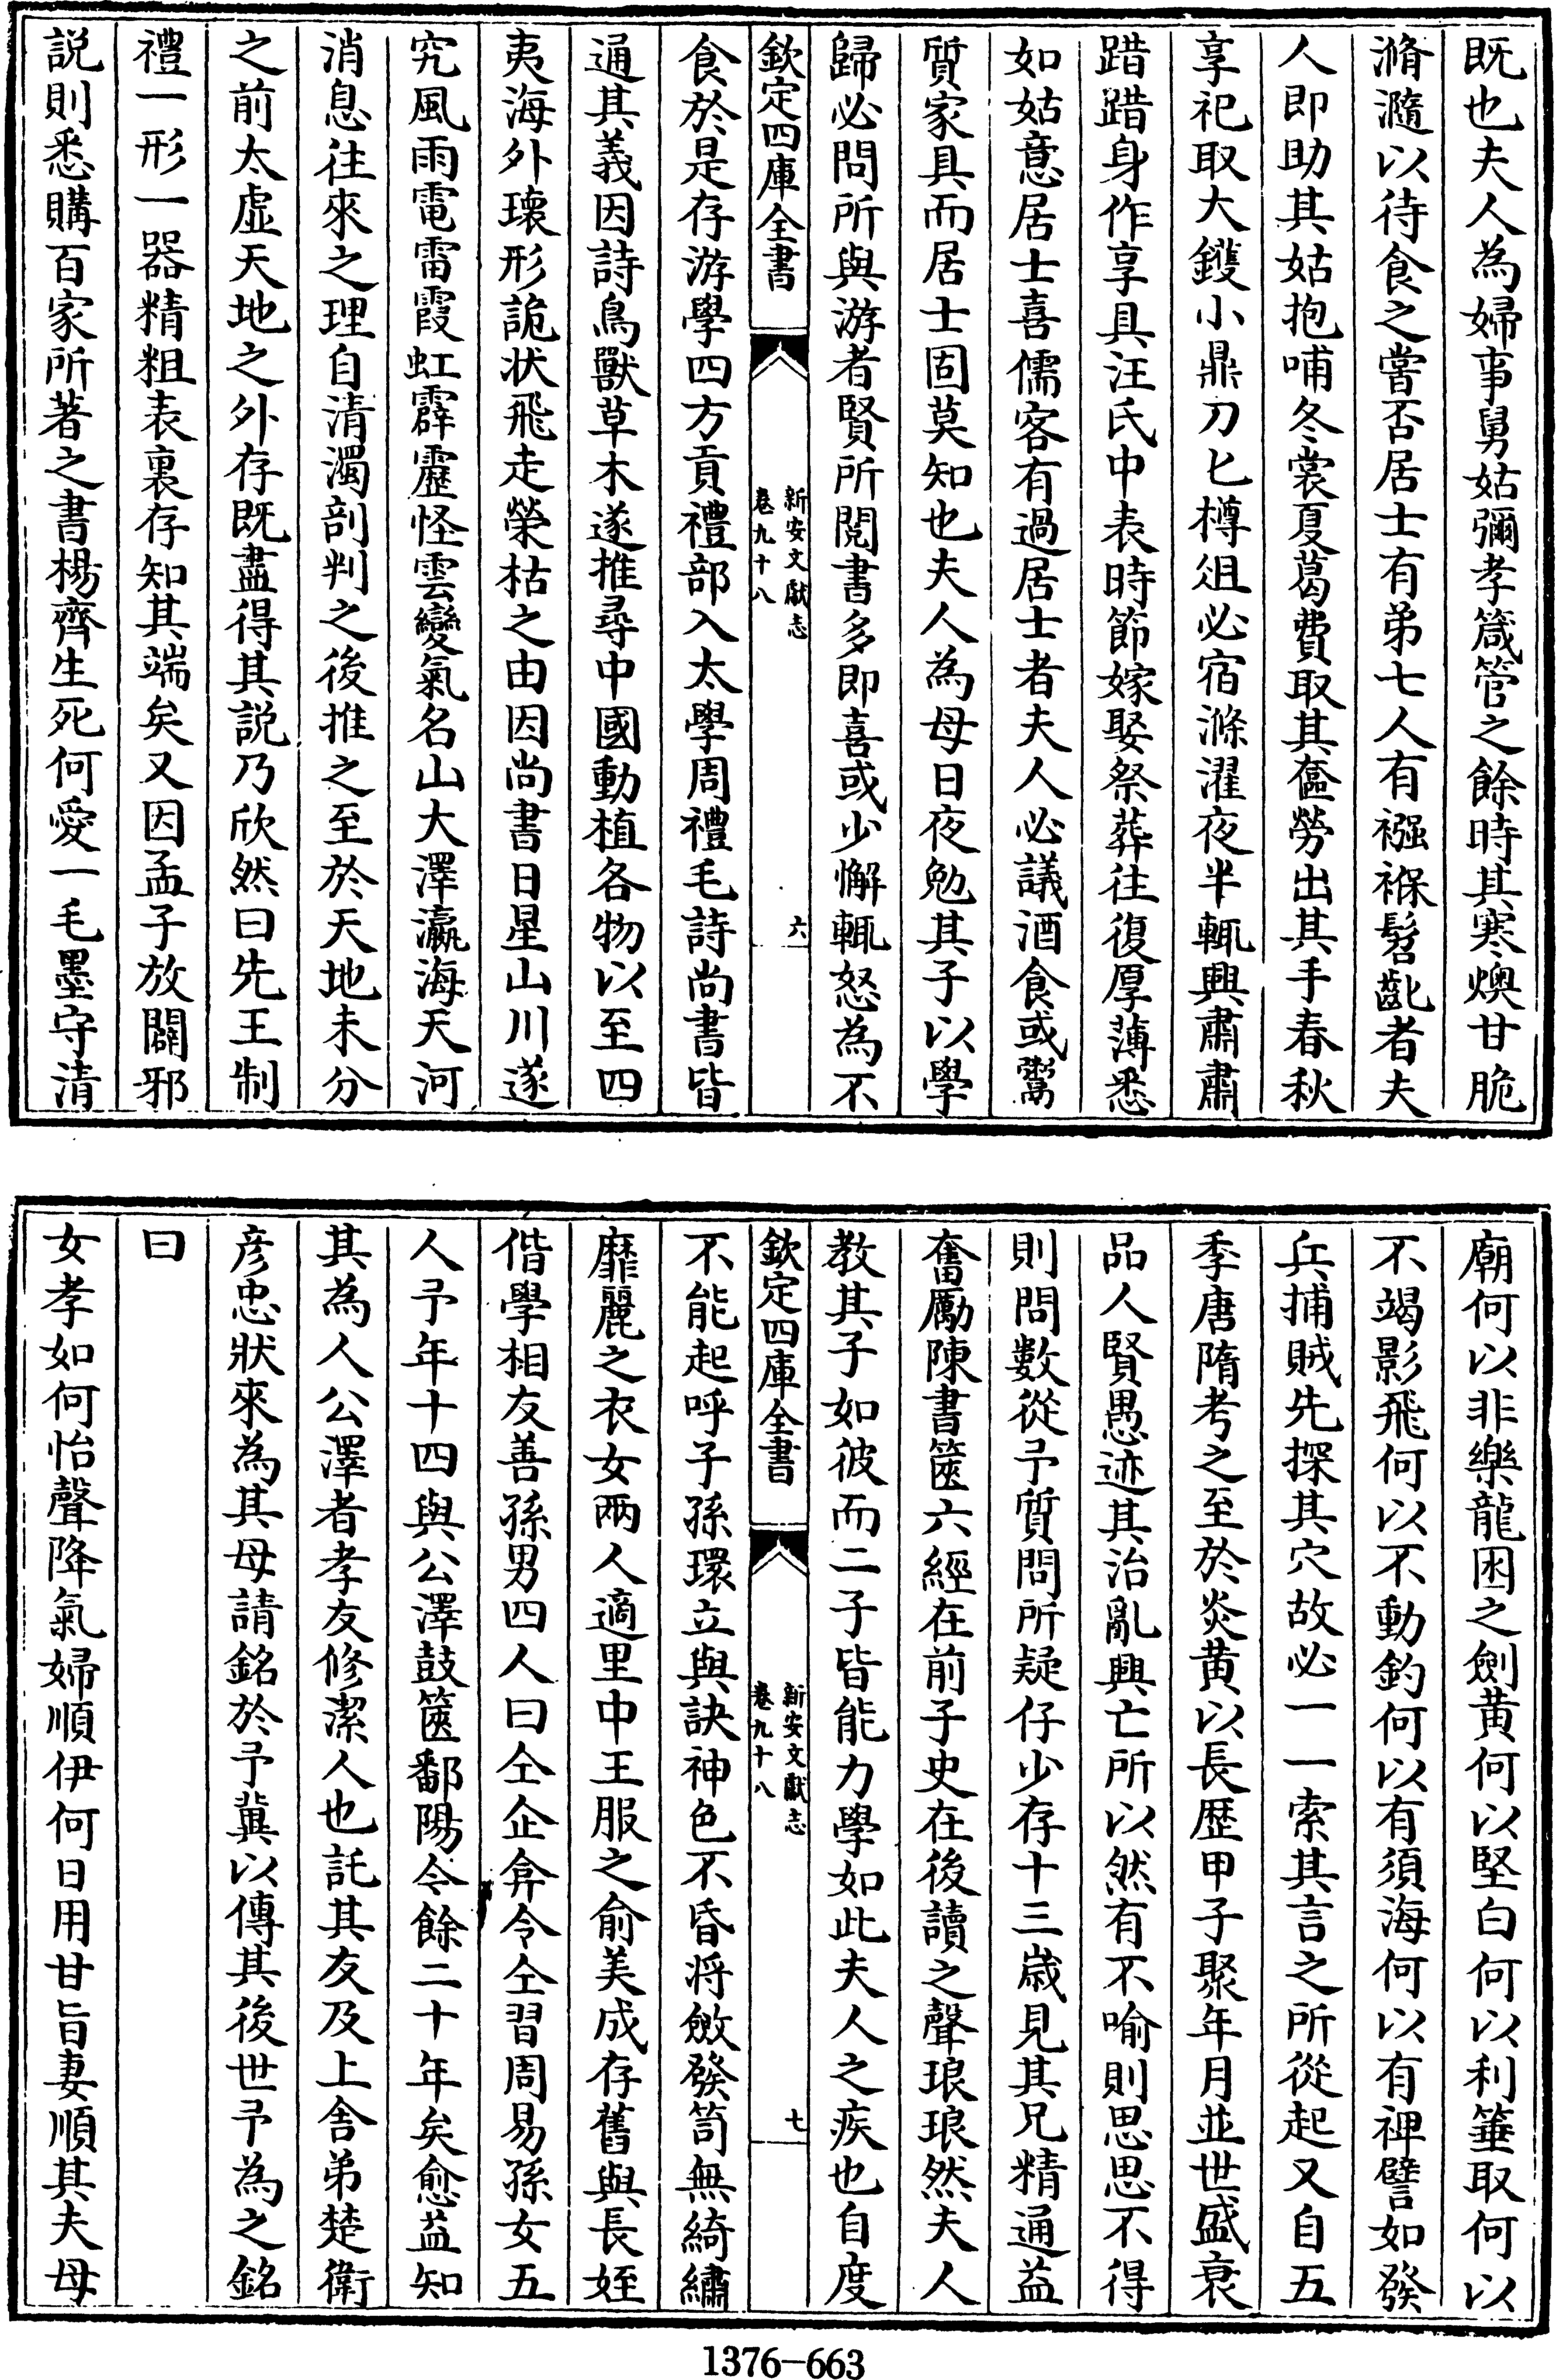 既也夫人為婦事舅姑彌孝箴管之餘時其寒燠甘脆
滫瀡以待食之嘗否居士有弟七人有襁褓髫齔者夫
人即助其姑抱哺冬裳夏葛費取其奩勞出其手春秋
享祀取大鑊小鼎刀匕樽俎必宿滌濯夜半輒興肅肅
踖踖身作享具汪氏中表時節嫁娶祭葬往復厚薄悉
如姑意居士喜儒客有過居士者夫人必議酒食或鬻
質家具而居士固莫知也夫人為母日夜勉其子以學
歸必問所與游者賢所閱書多即喜或少懈輒怒為不
欽定四庫全書
新安文獻志
卷九十八
六
食於是存游學四方貢禮部入太學周禮毛詩尚書皆
通其義因詩鳥獸草木遂推尋中國動植各物以至四
夷海外瓌形詭状飛走榮枯之由因尚書日星山川遂
究風雨電雷霞虹霹靂怪雲變氣名山大澤瀛海天河
消息往來之理自清濁剖判之後推之至於天地未分
之前太虛天地之外存既盡得其説乃欣然曰先王制
禮一形一器精粗表裏存知其端矣又因孟子放闢邪
説則悉購百家所著之書楊齊生死何愛一毛墨守清
廟何以非樂龍困之劍黄何以堅白何以利箠取何以
不竭影飛何以不動鈞何以有須海何以有裨譬如發
兵捕賊先探其穴故必一一索其言之所從起又自五
季唐隋考之至於炎黄以長歷甲子聚年月並世盛衰
品人賢愚迹其治亂興亡所以然有不喻則思思不得
則問數從予質問所疑仔少存十三歳見其兄精通益
奮勵陳書篋六經在前子史在後讀之聲琅琅然夫人
教其子如彼而二子皆能力學如此夫人之疾也自度
欽定四庫全書
新安文獻志
卷九十八
七
不能起呼子孫環立與訣神色不昏将斂發笥無綺繡
靡麗之衣女兩人適里中王服之俞美成存舊與長姪
偕學相友善孫男四人曰仝企弇令仝習周易孫女五
人予年十四與公澤鼓篋鄱陽令餘二十年矣愈益知
其為人公澤者孝友修潔人也託其友及上舍弟楚衛
彦忠狀來為其母請銘於予冀以傳其後世予為之銘
曰
女孝如何怡聲降氣婦順伊何日用甘旨妻順其夫母
1376-663